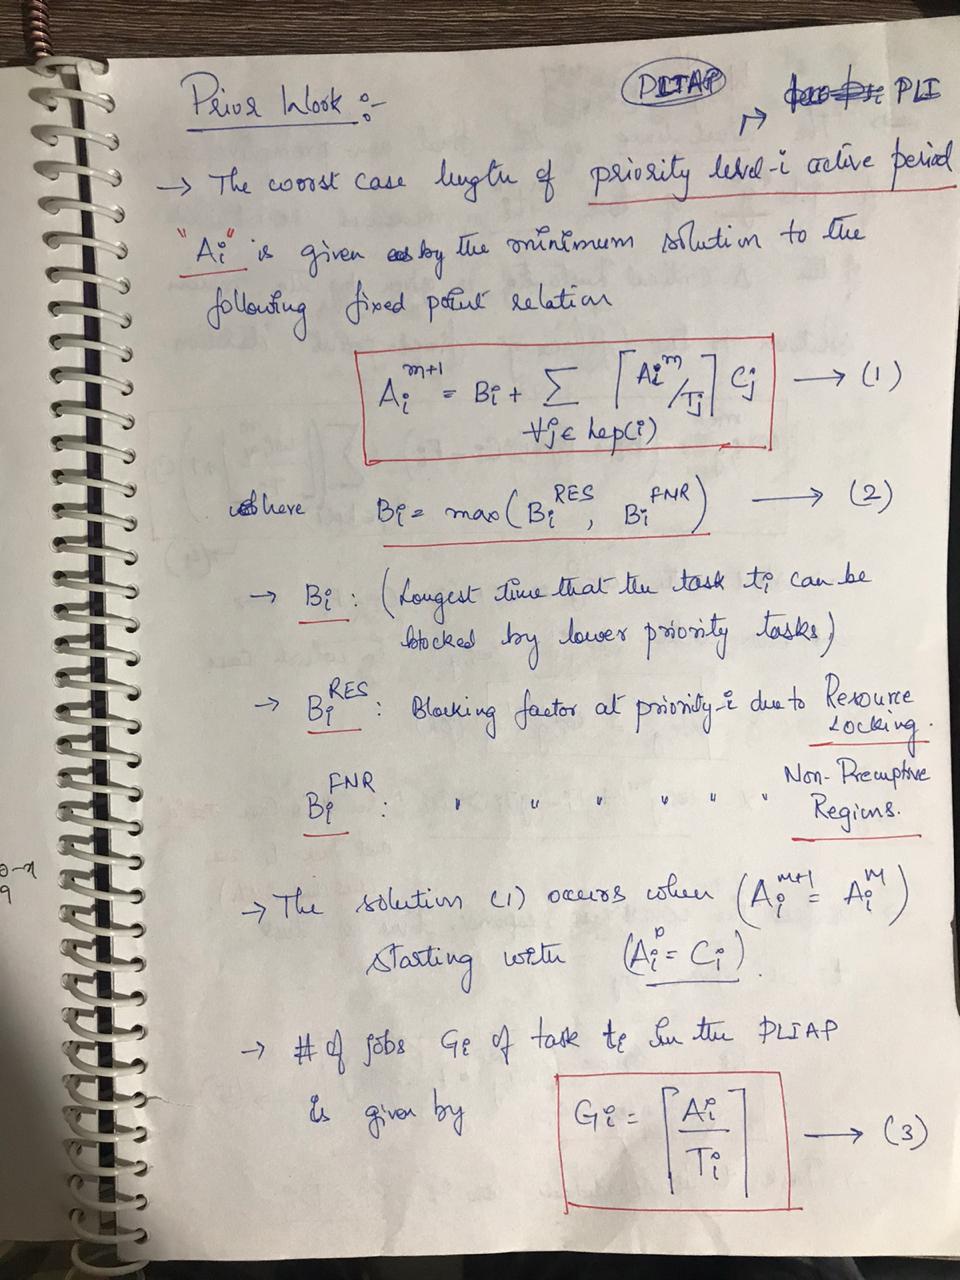 Prior Work :-
PLIAP
→ PLI
→ The worst case length of priority level-i active period
"Ai" is given by the minimum solution to the
following fixed point relation
Ai^{m+1} = Bi + Σ_{∀j∈ hep(i)} ⌈Ai^m/Tj⌉ Cj → (1)
where Bi = max(Bi^{RES}, Bi^{FNR}) → (2)
→ Bi : (Longest time that the task ti can be
blocked by lower priority tasks)
→ Bi^{RES} : Blocking factor at priority-i due to Resource
Locking.
Bi^{FNR} : " " " " " " Non-Preemptive
Regions.
→ The solution (1) occurs when (Ai^{m+1} = Ai^m)
starting with (Ai^0 = Ci).
→ # of jobs Gi of task ti in the PLIAP
is given by Gi = ⌈Ai/Ti⌉ → (3)